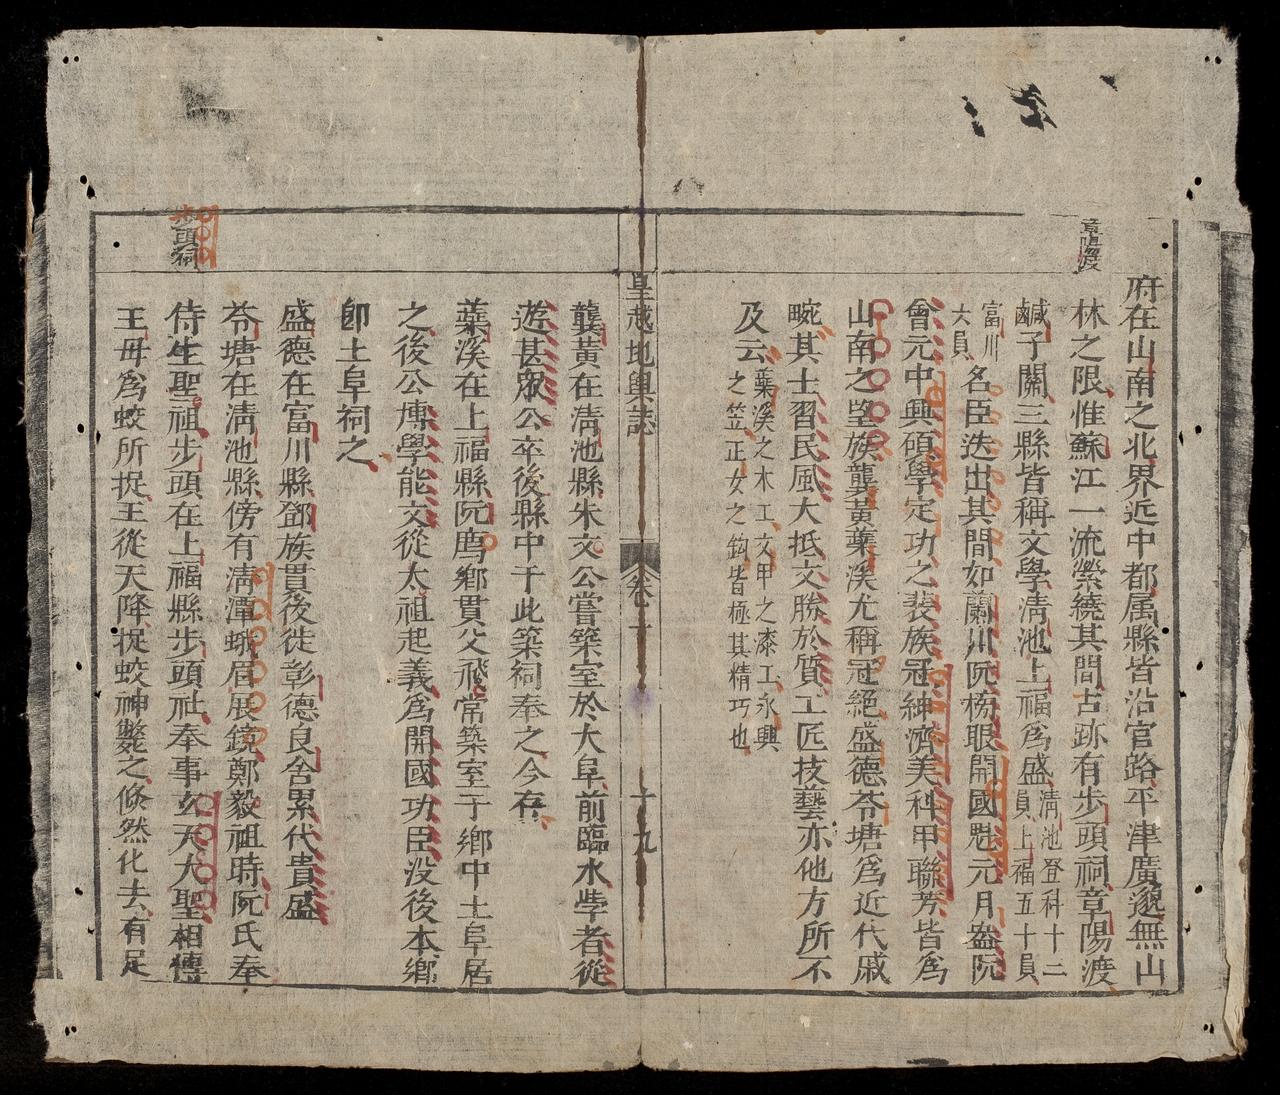 章陽渡
府在山南之北界近中都属縣皆沿官路平津廣邈無山
林之限惟蘇江一流縈繞其間古跡有步頭祠章陽渡
鹹子關三縣皆稱文學淸池上福爲盛淸池登科十二員上福五十員
富川大員名臣迭出其間如蘭川阮榜眼開國魁元月盎阮
會元中興碩學定功之裴族冠紳濟美科甲聯芳皆爲
山南之望族龔黃蘗溪尤稱冠絕盛德苓塘爲近代戚
畹其士習民風大抵文勝於質工匠技藝亦他方所不
及云蘗溪之木工文甲之漆工永興之笠正女之鈎皆極其精巧也
皇越地輿誌
卷一
十九
龔黃在淸池縣朱文公嘗築室於大阜前臨水學者從
遊甚衆公卒後縣中于此築祠奉之今存
蘗溪在上福縣阮廌鄉貫父飛常築室于鄉中土阜居
之後公慱學能文從太祖起義爲開國功臣没後本鄉
卽土阜祠之
盛德在富川縣鄧族貫後徙彰德良舍累代貴盛
苓塘在淸池縣傍有淸潭蛾眉展鏡鄭毅祖時阮氏奉
侍生聖祖步頭在上福縣步頭社奉事玄天大聖相傳
王母爲蛟所捉王從天降捉蛟神斃之倏然化去有足
步頭祠